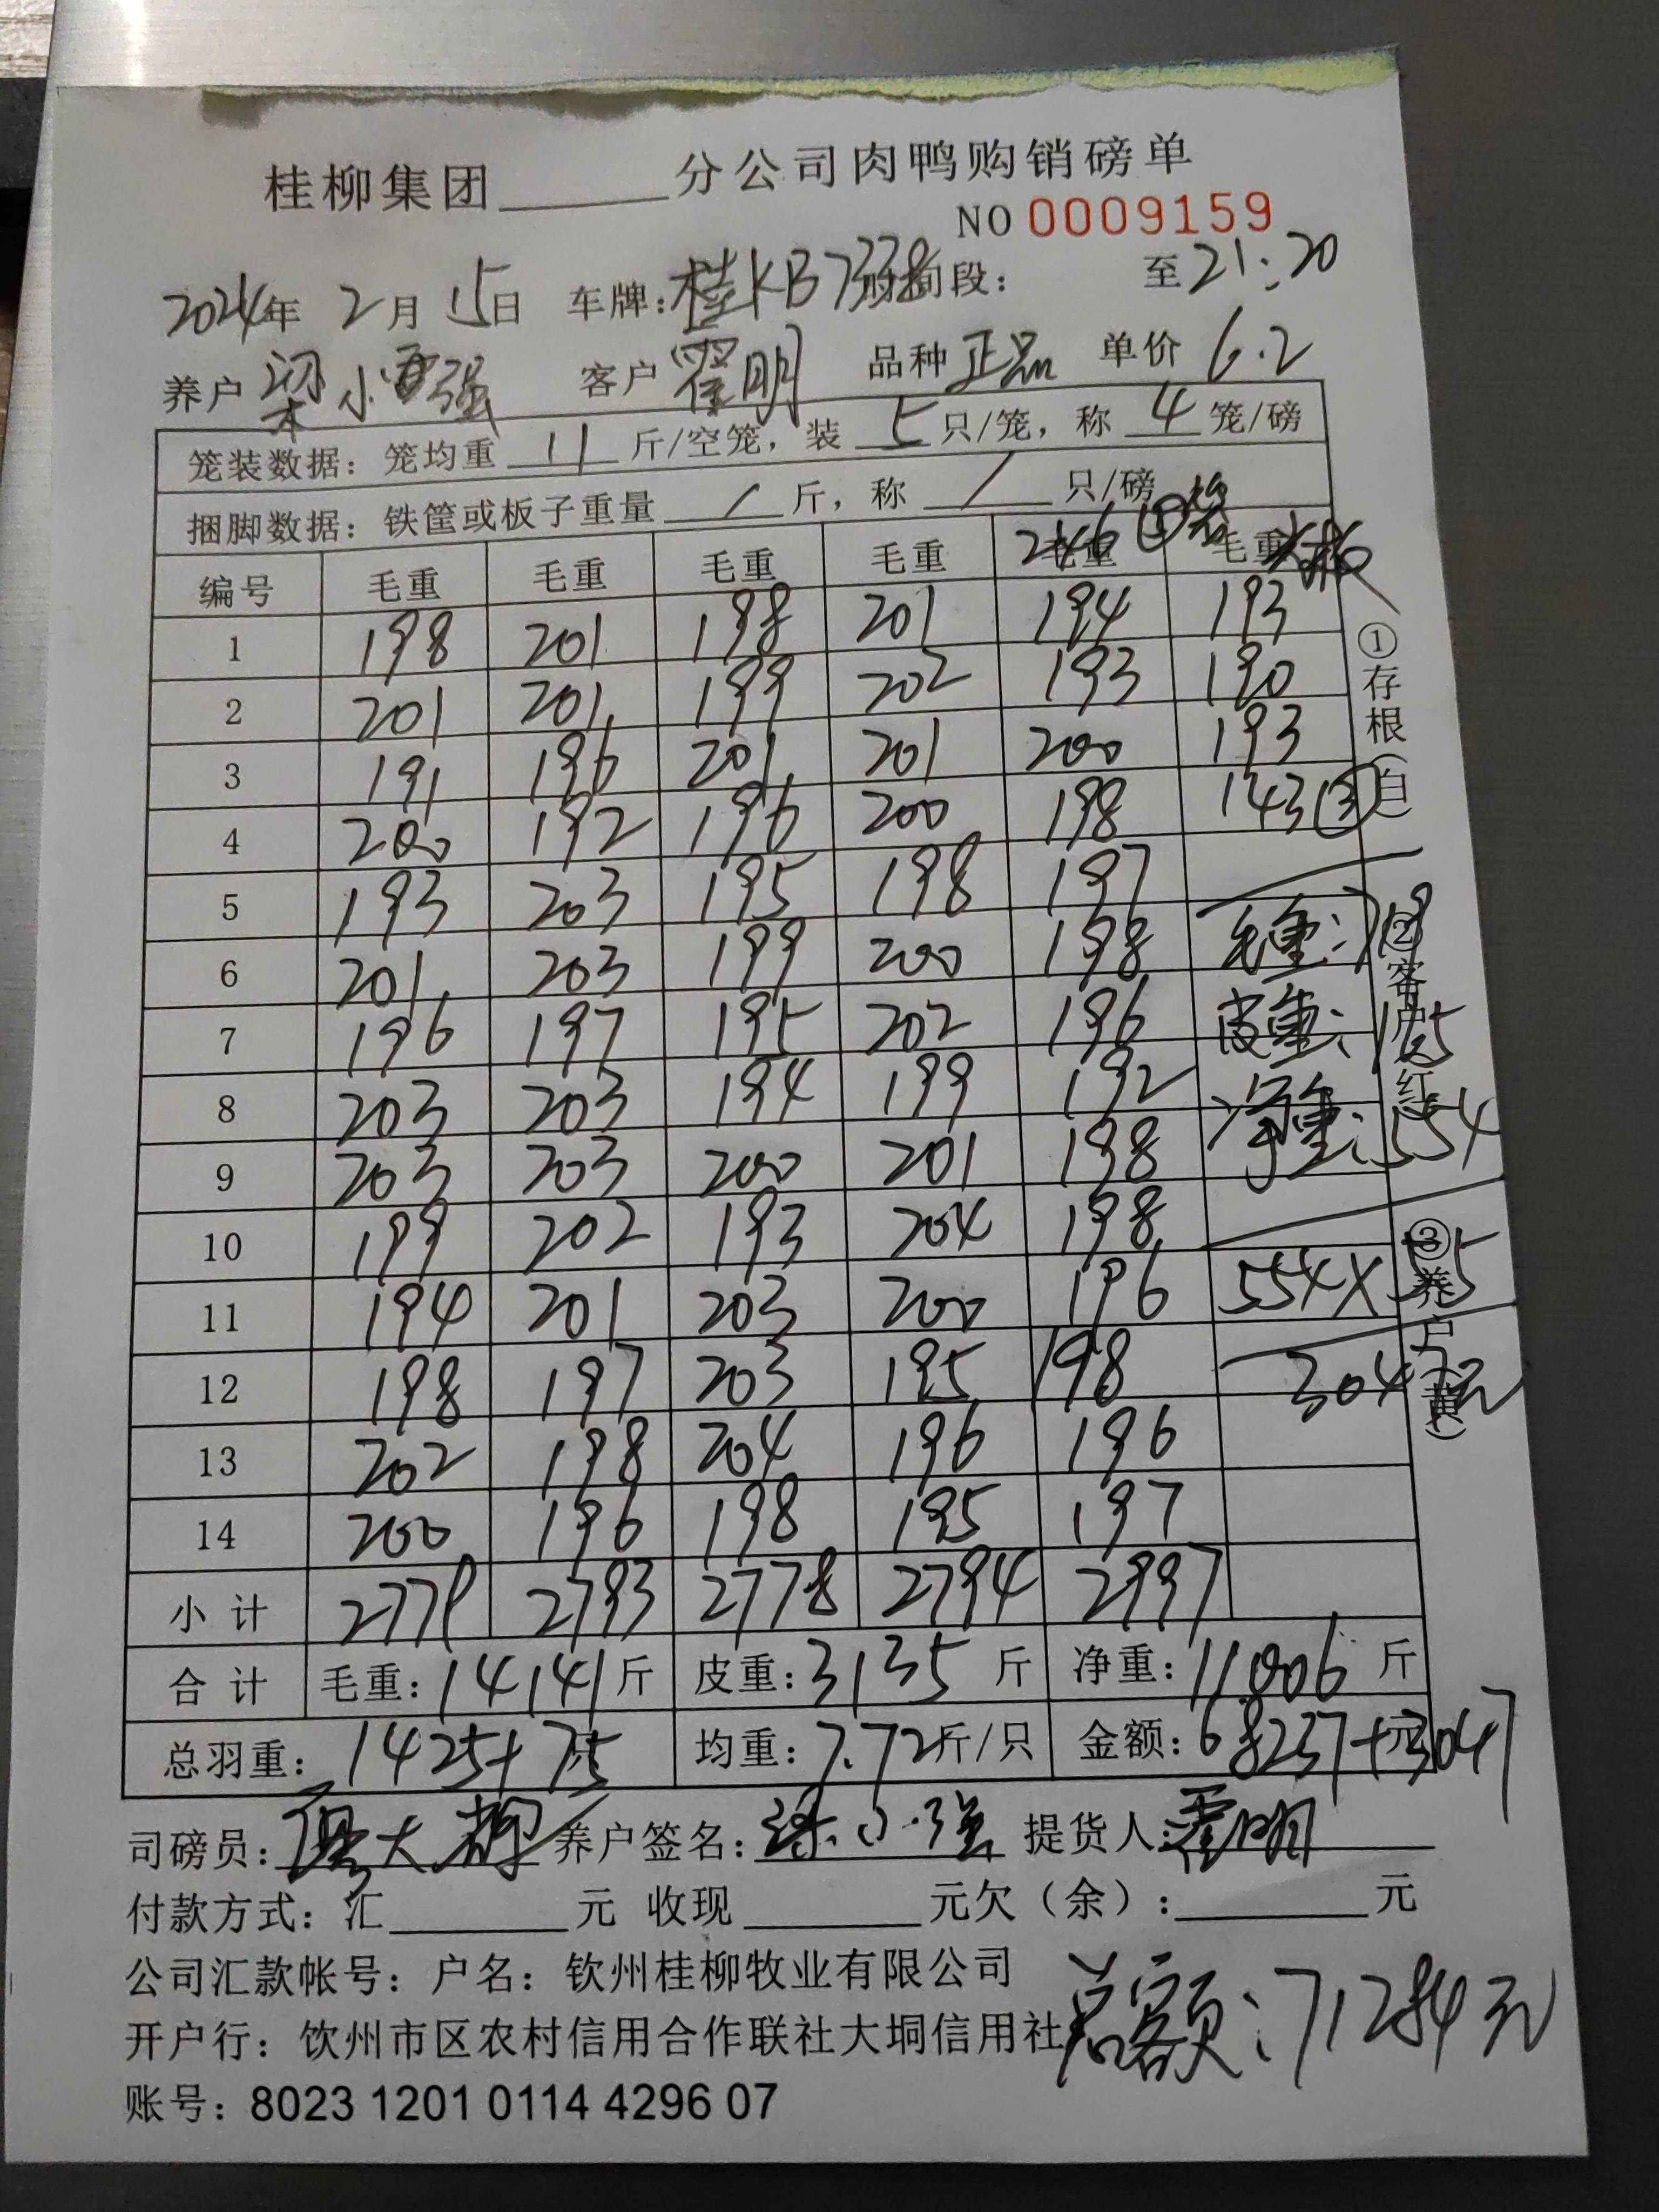 桂柳集团______分公司肉鸭购销磅单
NO 0009159
2024年 2月 15日 车牌:桂KB7338 时间段: 至21:20
养户 梁小强 客户 霍明 品种 正品 单价 6.2
笼装数据: 笼均重 11 斤/空笼, 装 5 只/笼, 称 4 笼/磅
捆脚数据: 铁筐或板子重量 / 斤, 称 / 只/磅
编号 毛重 毛重 毛重 毛重 毛重 毛重
1 198 201 198 201 194 193
2 201 201 199 202 193 190
3 191 196 201 201 200 193
4 200 192 196 200 198 143③
5 193 203 195 198 197
6 201 203 199 200 198 毛重:
7 196 197 195 202 196 皮重:
8 203 203 194 199 192 净重:554
9 203 203 200 201 198
10 199 202 193 204 198
11 194 201 203 200 196 554×5.5
12 198 197 203 195 198 3047元
13 202 198 204 196 196
14 200 196 198 195 197
小计 2779 2793 2778 2794 2997
合计 毛重:14141斤 皮重:3135 斤 净重:11006 斤
总羽重: 1425+75 均重:7.72斤/只 金额:68237+3047元
司磅员: 养户签名:梁小强 提货人:霍明
付款方式: 汇______元 收现______元欠(余):______元
公司汇款帐号: 户名: 钦州桂柳牧业有限公司
总额:71284元
开户行: 饮州市区农村信用合作联社大垌信用社
账号: 8023 1201 0114 4296 07
①存根(白)
②客户(红)
③养户(黄)